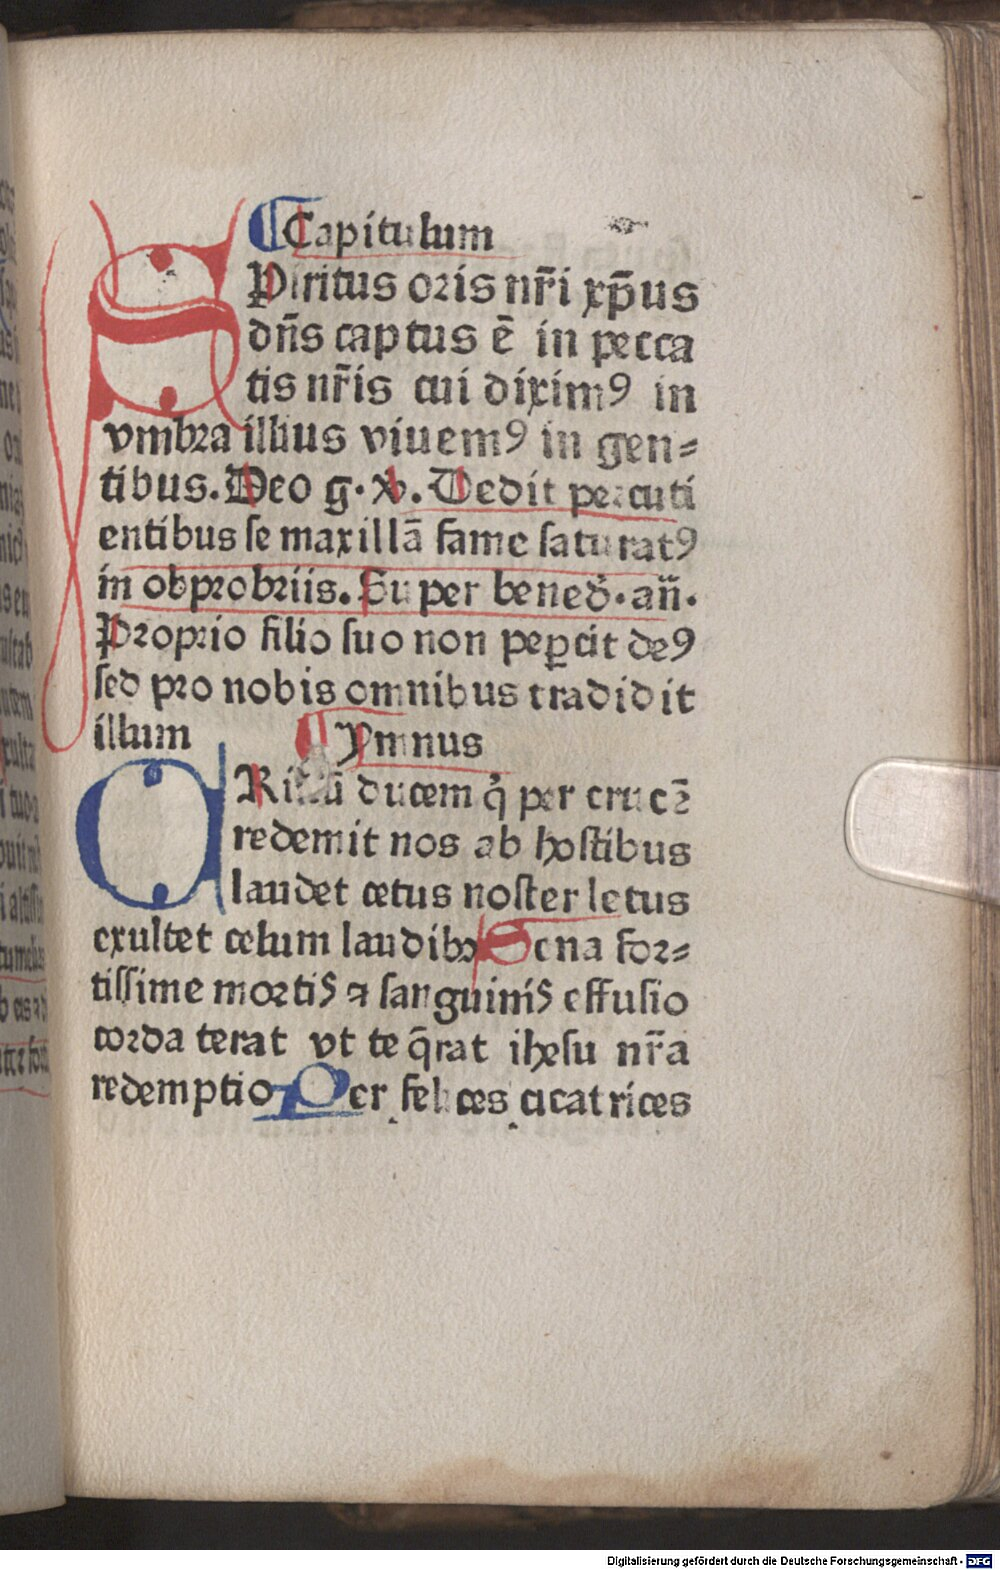 Capitulum
SPiritus oris nr̄i xp̄us
dn̄s captus ē in pecca
tis nr̄is cui diximꝰ in
vmbra illius viuemꝰ in gen⸗
tibus. Deo g. v. Dedit percuti
entibus se maxillā fame saturatꝰ
in obprobriis. Super bened̄. an̄.
Proprio filio suo non peꝑcit deꝰ
sed pro nobis omnibus tradidit
illum Ymnus
CRistū ducem q̇ per crucē
redemit nos ab hostibus
laudet cetus noster letus
exultet celum laudibꝫ Pena for⸗
tissime mortis ⁊ sanguinis effusio
corda terat vt te q̄rat ihesu nr̄a
redemptio Per felices cicatrices
Digitalisierung gefördert durch die Deutsche Forschungsgemeinschaft - DFG